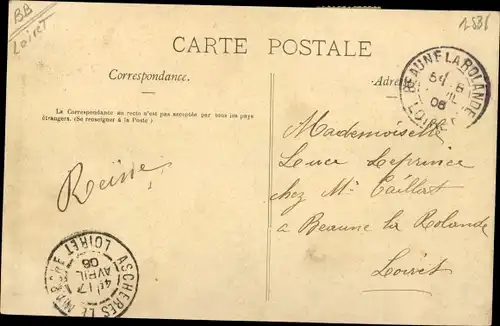 BB
Loiret
1535
CARTE POSTALE
Correspondance.
La Correspondance au recto n'est pas acceptée par tous les pays
étrangers. (Se renseigner à la Poste)
Reine
BEAUNE LA ROLANDE
08
LOIRET
Mademoiselle
Luce Leprince
chez Mr Taillat
a Beaune la Rolande
Loiret
ASCHERES LE MARCHE
4E 17
AVRIL
08
LOIRET